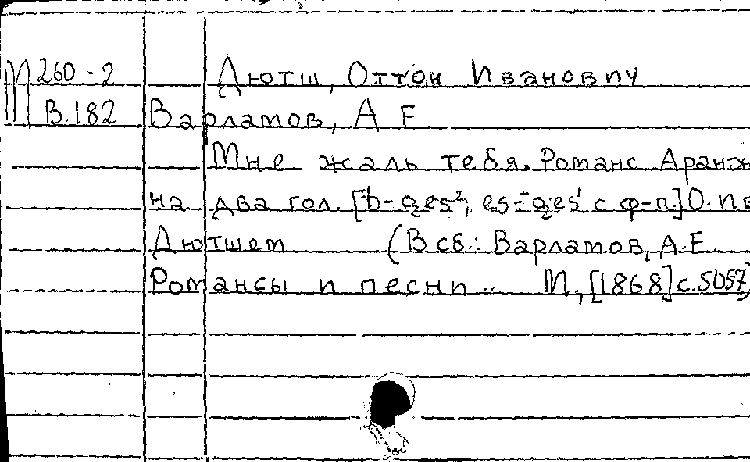 М 260-2 Дютш, Оттон Иванович
В.182 Варламов, А Е
Мне жаль тебя. Романс Аранж
на два гол. [b-ges², es-ges¹ с ф-п.] О. Ив
Дютшем (В сб.: Варламов, А.Е.
Романсы и песни.. М., [1868] с.5057)